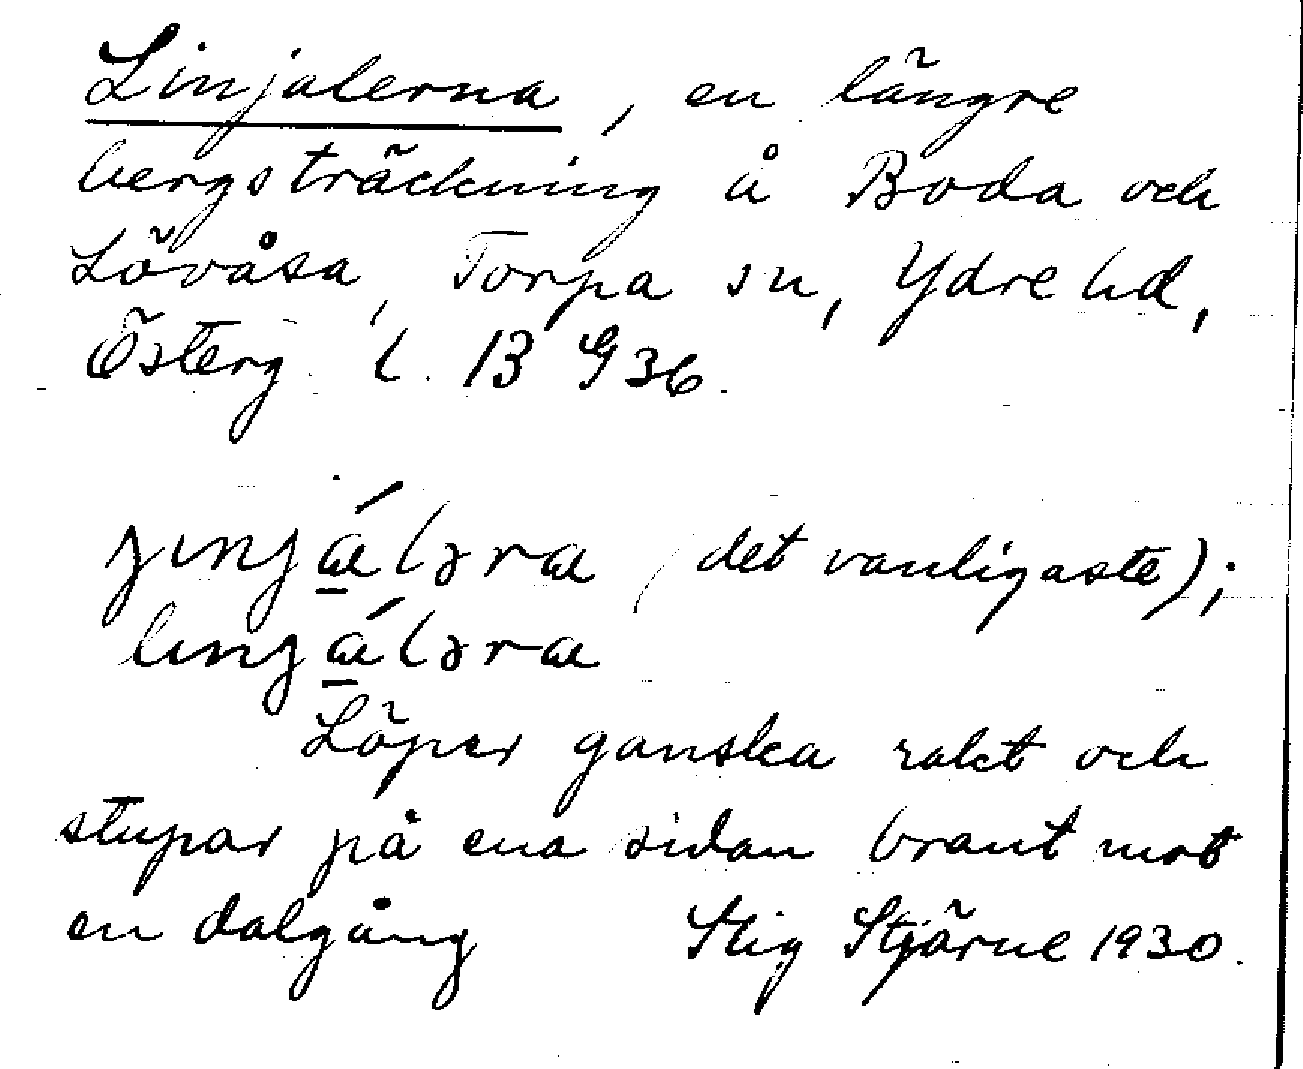 Linjalerna, en längre
bergsträckning å Boda och
Lövåsa, Torpa sn, Ydre hd,
Österg l. 13 G 36.
jɩnjá̱ləra (det vanligaste);
lɩnjá̱ləra
Löper ganska rakt och
stupar på ena sidan brant mot
en dalgång Stig Stjärne 1930.